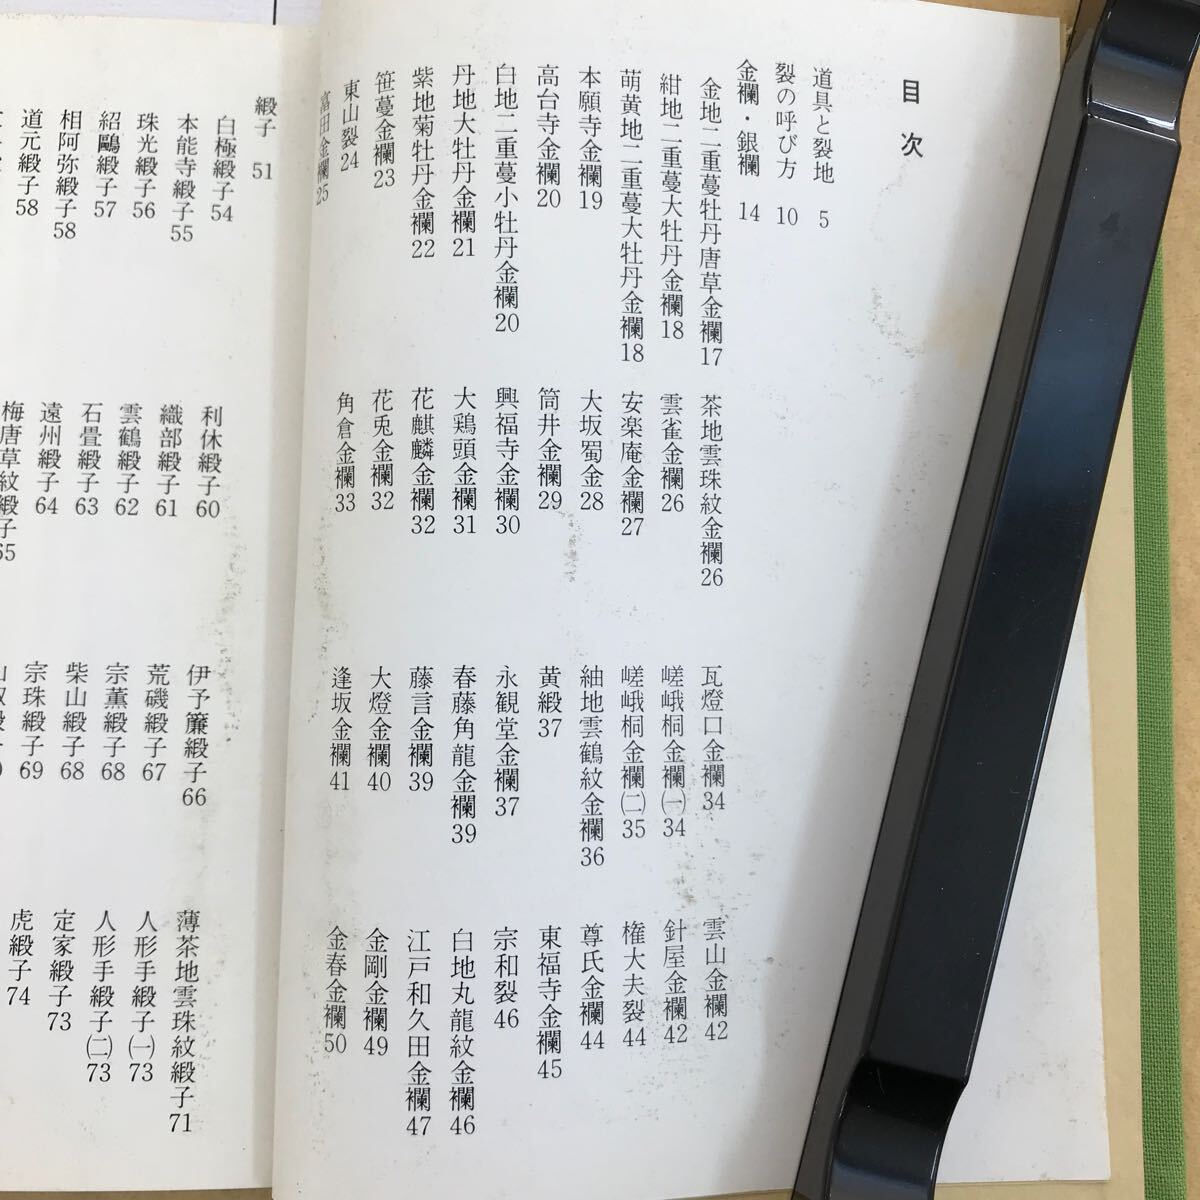 目次
道具と裂地 5
裂の呼び方 10
金襴・銀襴 14
金地二重蔓牡丹唐草金襴17
紺地二重蔓大牡丹金襴18
萌黄地二重蔓大牡丹金襴18
本願寺金襴19
高台寺金襴20
白地二重蔓小牡丹金襴20
丹地大牡丹金襴21
紫地菊牡丹金襴22
笹蔓金襴23
東山裂24
富田金襴25
茶地雲珠紋金襴26
雲雀金襴26
安楽庵金襴27
大坂蜀金28
筒井金襴29
興福寺金襴30
大鶏頭金襴31
花麒麟金襴32
花兎金襴32
角倉金襴33
瓦燈口金襴34
嵯峨桐金襴㈠34
嵯峨桐金襴㈡35
紬地雲鶴紋金襴36
黄緞37
永観堂金襴37
春藤角龍金襴39
藤言金襴39
大燈金襴40
逢坂金襴41
雲山金襴42
針屋金襴42
権大夫裂44
尊氏金襴44
東福寺金襴45
宗和裂46
白地丸龍紋金襴46
江戸和久田金襴47
金剛金襴49
金春金襴50
緞子 51
白極緞子54
本能寺緞子55
珠光緞子56
紹鷗緞子57
相阿弥緞子58
道元緞子58
利休緞子60
織部緞子61
雲鶴緞子62
石畳緞子63
遠州緞子64
梅唐草紋緞子65
伊予簾緞子66
荒磯緞子67
宗薫緞子68
柴山緞子68
宗珠緞子69
薄茶地雲珠紋緞子71
人形手緞子㈠73
人形手緞子㈡73
定家緞子73
虎緞子74